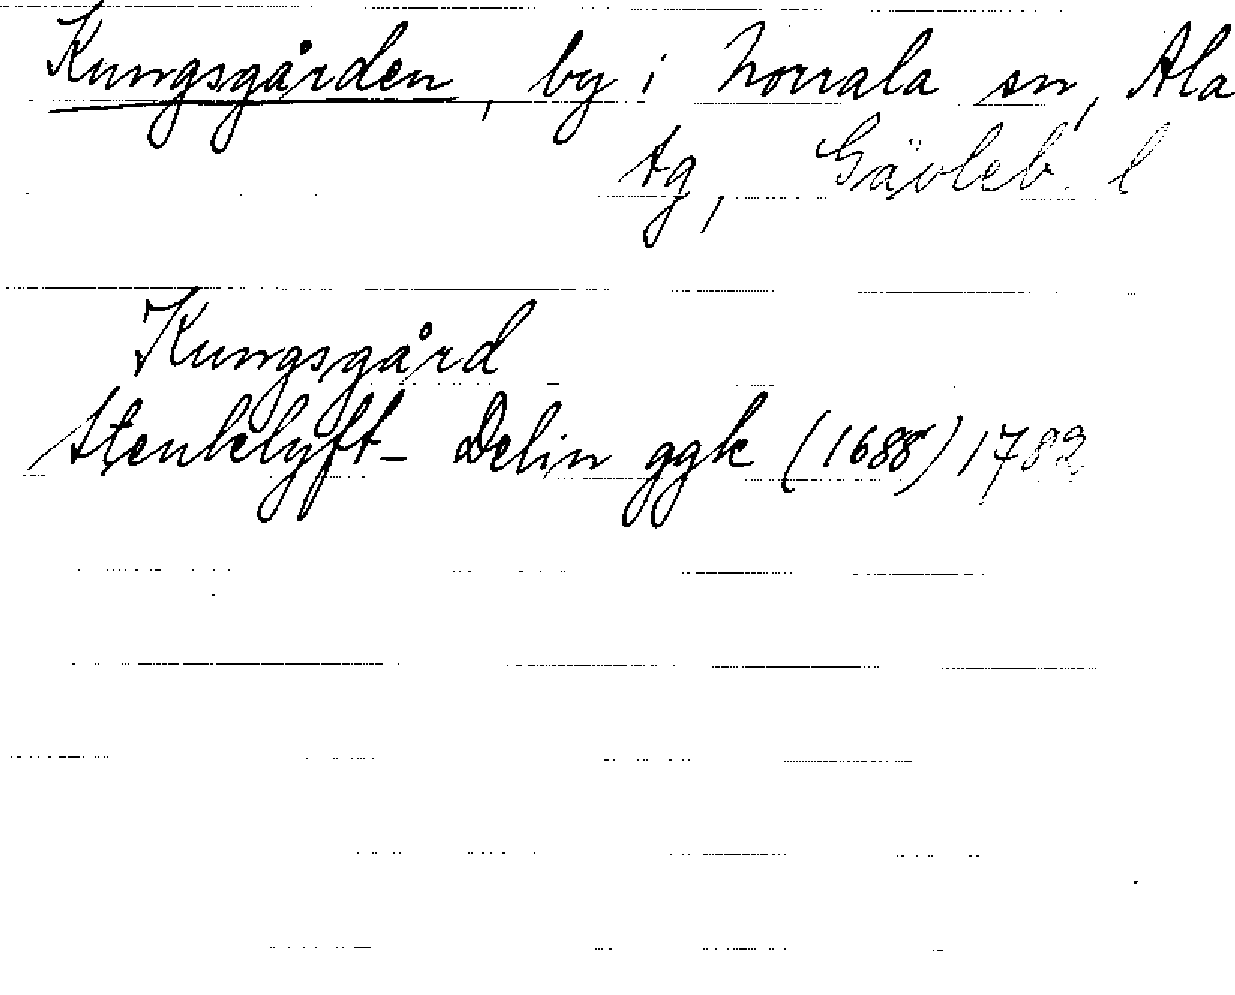 Kungsgården, by i Norrala sn, Ala
tg, Gävleb. l
Kungsgård
Stenklyft- Delin ggk (1688) 1782